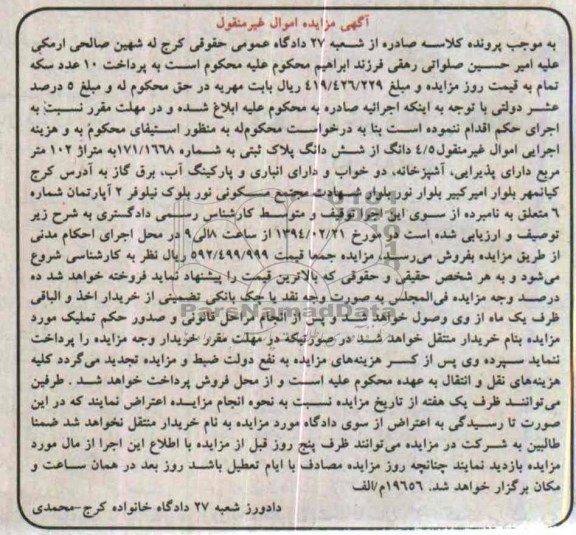 آگهی مزایده اموال غیرمنقول
به موجب پرونده کلاسه صادره از شعبه ۲۷ دادگاه عمومی حقوقی کرج له شهین صالحی ارمکی
علیه امیر حسین صلواتی رهقی فرزند ابراهیم محکوم علیه محکوم است به پرداخت ۱۰ عدد سکه
تمام به قیمت روز مزایده و مبلغ ۴۱۹/۴۲۶/۲۲۹ ریال بابت مهریه در حق محکوم له و مبلغ ۵ درصد
عشر دولتی با توجه به اینکه اجرائیه صادره به محکوم علیه ابلاغ شده و در مهلت مقرر نسبت به
اجرای حکم اقدام ننموده است بنا به درخواست محکوم‌له به منظور استیفای محکوم به و هزینه
اجرایی اموال غیرمنقول ۴/۵ دانگ از شش دانگ پلاک ثبتی به شماره ۱۷۱/۱۶۶۸به متراژ ۱۰۲ متر
مربع دارای پذیرایی، آشپزخانه، دو خواب و دارای انباری و پارکینگ آب، برق گاز به آدرس کرج
کیانمهر بلوار امیرکبیر بلوار نور بلوار شهادت مجتمع مسکونی نور بلوک نیلوفر ۲ آپارتمان شماره
۶ متعلق به نامبرده از سوی این اجرا توقیف و متوسط کارشناس رسمی دادگستری به شرح زیر
توصیف و ارزیابی شده است در مورخ ۱۳۹۴/۰۲/۲۱ از ساعت ۸الی۹ در محل اجرای احکام مدنی
از طریق مزایده بفروش می‌رسد، مزایده جمعا قیمت ۵۹۲/۴۹۹/۹۹۹ ریال نظر به کارشناسی شروع
می‌شود و به هر شخص حقیقی و حقوقی که بالاترین قیمت را پیشنهاد نماید فروخته خواهد شد ده
درصد وجه مزایده فی‌المجلس به صورت وجه نقد یا چک بانکی تضمینی از خریدار اخذ و الباقی
ظرف یک ماه از وی وصول خواهد شد و پس از انجام مراحل قانونی و صدور حکم تملیک مورد
مزایده بنام خریدار منتقل خواهد شد در صورتیکه در مهلت مقرر خریدار وجه مزایده را پرداخت
ننماید سپرده وی پس از کسر هزینه‌های مزایده به نفع دولت ضبط و مزایده تجدید می‌گردد کلیه
هزینه‌های نقل و انتقال به عهده محکوم علیه است و از محل فروش پرداخت خواهد شد . طرفین
می‌توانند ظرف یک هفته از تاریخ مزایده نسبت به نحوه انجام مزایده اعتراض نمایند که در این
صورت تا رسیدگی به اعتراض از سوی دادگاه مورد مزایده به نام خریدار منتقل نخواهد شد ضمنا
طالبین به شرکت در مزایده می‌توانند ظرف پنج روز قبل از مزایده با اطلاع این اجرا از مال مورد
مزایده بازدید نمایند چنانچه روز مزایده مصادف با ایام تعطیل باشد روز بعد در همان ساعت و
مکان برگزار خواهد شد. ۱۹۶۵۶م/الف
دادورز شعبه ۲۷ دادگاه خانواده کرج-محمدی
ParsNamadData